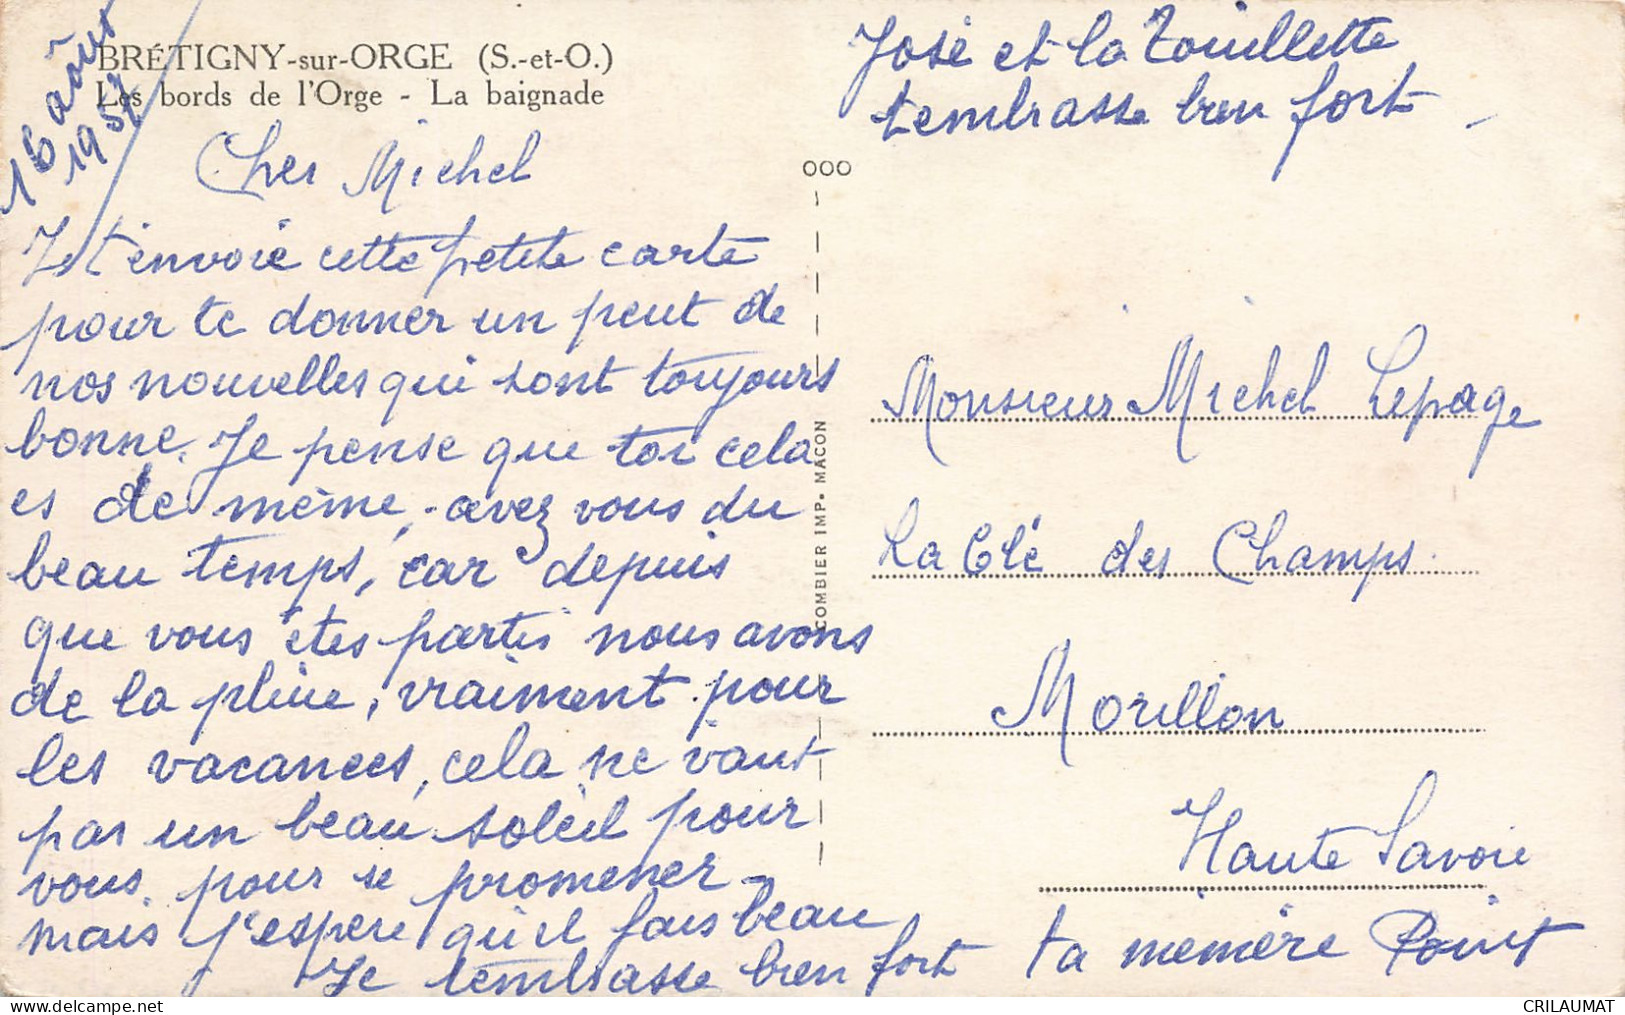 16 août
1957
BRÉTIGNY-sur-ORGE (S.-et-O.)
Les bords de l'Orge - La baignade
Cher Michel
Je t'envoie cette petite carte
pour te donner un peut de
nos nouvelles qui sont toujours
bonne. Je pense que toi cela
es de même, - avez vous du
beau temps, car depuis
que vous êtes partis nous avons
de la pluie, vraiment pour
les vacances, cela ne vaut
pas un beau soleil pour
vous. pour se promener -
mais j'espere qu'il fais beau
Je t'embrasse bien fort ta mémère
José et la
t'embrasse bien fort -
OOO
COMBIER IMP. MACON
Monsieur Michel Lepage
La Clé des Champs.
Morillon
Haute Savoie
CRILAUMAT